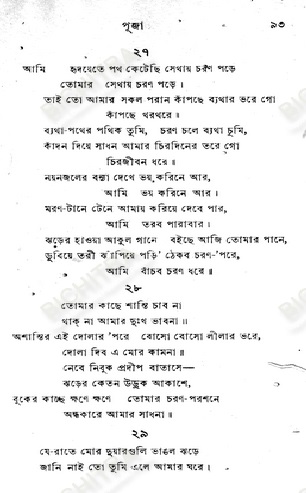 পূজা ৯৩
২৭
আমি হৃদয়েতে পথ কেটেছি সেথায় চরণ পড়ে
তোমার সেথায় চরণ পড়ে।
তাই তো আমার সকল পরান কাঁপছে ব্যথার ভরে গো
কাঁপছে থরথরে॥
ব্যথা-পথের পথিক তুমি, চরণ চলে ব্যথা চুমি,
কাঁদন দিয়ে সাধন আমার চিরদিনের তরে গো
চিরজীবন ধরে॥
নয়নজলের বন্যা দেখে ভয় করিনে আর,
আমি ভয় করিনে আর।
মরণ-টানে টেনে আমায় করিয়ে দেবে পার,
আমি তরব পারাবার।
ঝড়ের হাওয়া আকুল গানে বইছে আজি তোমার পানে,
ডুবিয়ে তরী ঝাঁপিয়ে পড়ি ঠেকব চরণ-'পরে,
আমি বাঁচব চরণ ধরে॥
২৮
তোমার কাছে শান্তি চাব না
থাক্ না আমার দুঃখ ভাবনা॥
অশান্তির এই দোলার 'পরে বোসো বোসো লীলার ভরে,
দোলা দিব এ মোর কামনা॥
নেবে নিবুক প্রদীপ বাতাসে—
ঝড়ের কেতন উড়ুক আকাশে,
বুকের কাছে ক্ষণে ক্ষণে তোমার চরণ-পরশনে
অন্ধকারে আমার সাধনা॥
২৯
যে-রাতে মোর দুয়ারগুলি ভাঙল ঝড়ে
জানি নাই তো তুমি এলে আমার ঘরে।